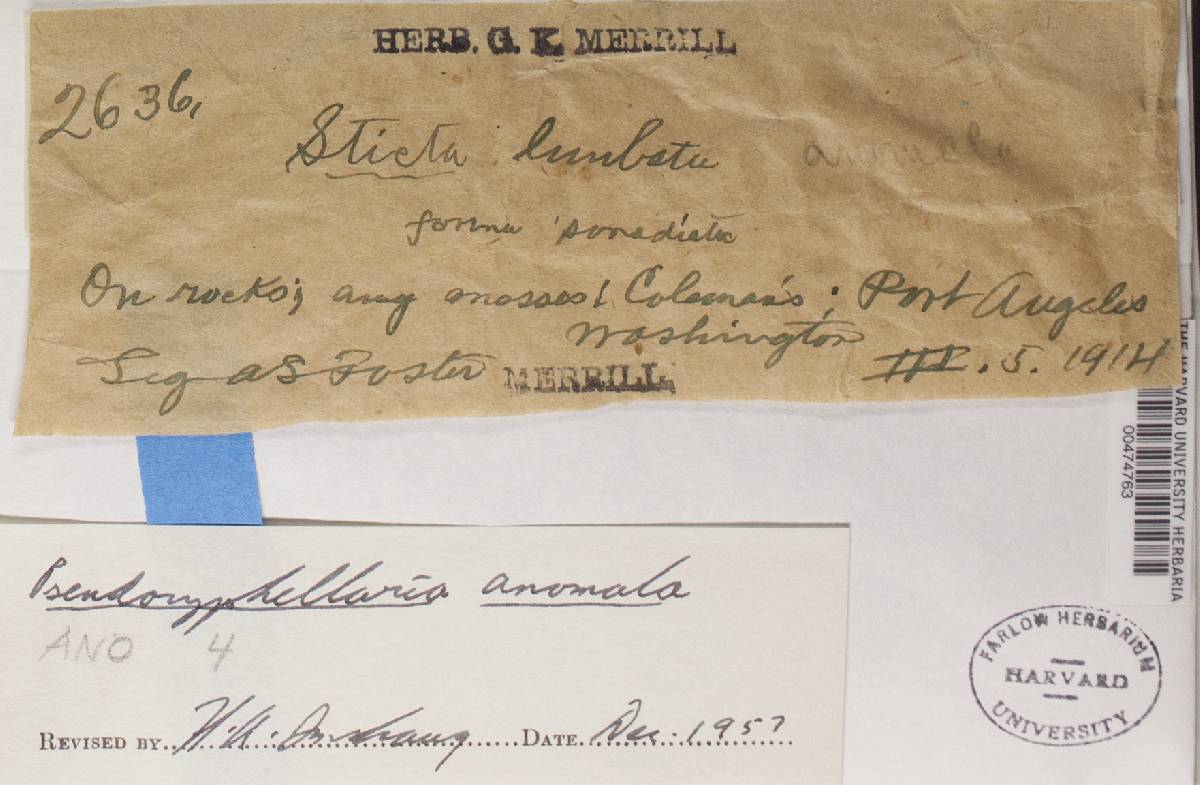 HERB. G. K. MERRILL
2636.
Sticta limbata
forma
On rocks; amg mosses! Coleman's; Port Angeles
Washington
Leg AS Foster MERRILL III. 5. 1914
THE HARVARD UNIVERSITY HERBARIA
00474763
Pseudocyphellaria anomala
ANO 4
REVISED BY H.A. Imshaug DATE Dec. 1957
FARLOW HERBARIUM
HARVARD
UNIVERSITY